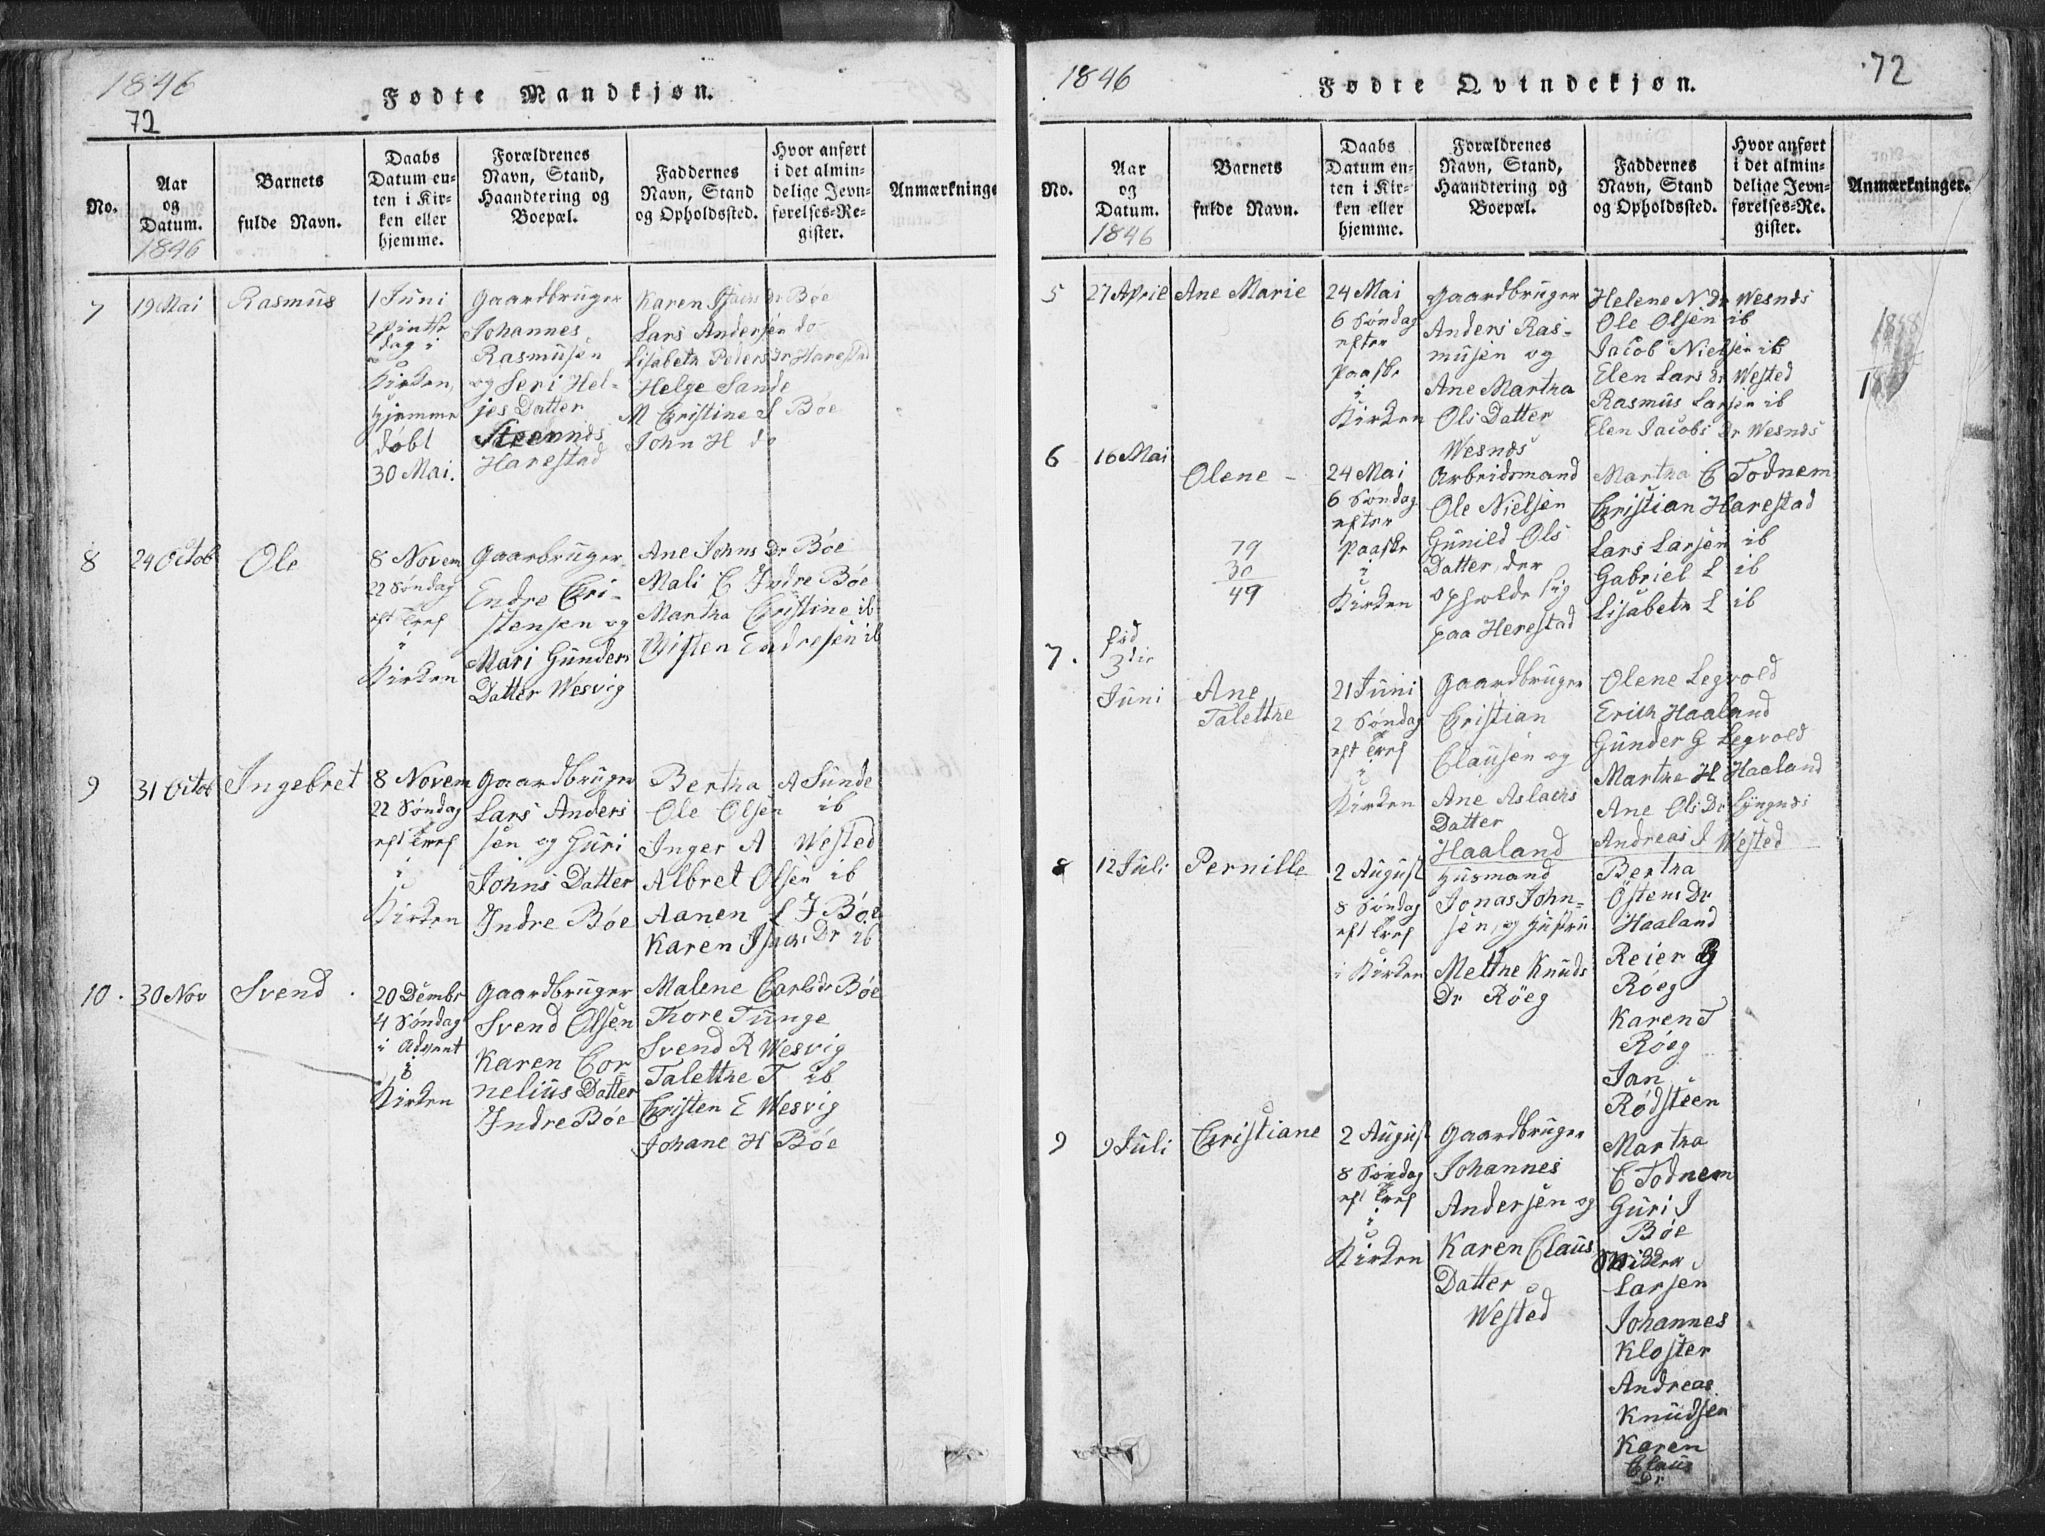 1846
72
Fødte Mandkjøn.
No.
Aar
og
Datum.
1846
Barnets
fulde Navn.
Daabs
Datum en-
ten i Kir-
ken eller
hjemme.
Forældrenes
Navn, Stand,
Haandtering og
Boepæl.
Faddernes
Navn, Stand
og Opholdssted.
Hvor anført
i det almin-
delige Jevn-
førelses-Re-
gister.
Anmærkninge
7
19 Mai
Rasmus
1 Juni
dag i
Kirken,
hjemme
døbt
30 Mai.
Gaardbruger
Johannes
Rasmusen
og Seri Hel-
jes Datter
Harestad
Karen Isachs Dr Bøe
Lars Andersen do
Lisabeth Peders Dr Harestad
Helge Sande
M Christine L Bøe
John H do
8
24 Octob
Ole
8 Novem
22 Søndag
eft Tref
i
Kirken
Gaarbruger
Endre Chri-
stensen og
Mari Gunders
Datter Wesvig
Ane Johns Dr Bøe
Mali C Indre Bøe
Martha Christine ib
Christen Endresen ib
9
31 Octob
Ingebret
8 Novem
22 Søndag
eft Tref
i
Kirken
Gaardbruger
Lars Anders
sen og Guri
Johns Datter
Indre Bøe
Bertha A Sunde
Ole Olsen ib
Inger A Wested
Albret Olsen ib
Aanen L I Bøe
Karen Isachs Dr ib
10.
30 Nov
Svend
20 Dembr
4 Søndag
i Advent
i
Kirken
Gaardbruger
Svend Olsen
Karen Cor
nelius Datter
Indre Bøe
Malene Carlsdr Bøe
Thore Tunge
Svend R Wesvig
Talethe T ib
Christen E Wesvig
Johane H Bøe
1846
72
Fødte Qvindekjøn.
No.
Aar
og
Datum.
1846
Barnets
fulde Navn.
Daabs
Datum en-
ten i Kir-
ken eller
hjemme.
Forældrenes
Navn, Stand,
Haandtering og
Boepæl.
Faddernes
Navn, Stand
og Opholdssted.
Hvor anført
i det almin-
delige Jevn-
førelses-Re.
gister.
Anmærkninger.
5
27 April
Ane Marie
24 Mai
6 Søndag
efter
Paaske
i
Kirken
Gaardbruger
Anders Ras-
musen og
Ane Martha
Ols Datter
Wesnes
Helene N Dr Wesnes
Ole Olsen ib
Jacob Nielsen ib
Elen Lars Dr Wested
Rasmus Larsen ib
Elen Jacobs Dr Wesnes
6
16 Mai
Olene
79
30
49
24 Mai
6 Søndag
efter
Paaske
i
Kirken
Arbeidsmand
Ole Nielsen
Gunild Ols
Datter, der
opholde sig
paa Herestad
Martha C Todnem
Christian Harestad
Lars Larsen ib
Gabriel L ib
Lisabeth L ib
7.
fød
3die
Juni
Ane
Talethe
21 Juni
2 Søndag
eft Tref
i
Kirken
Gaardbruger
Christian
Clausen og
Ane Aslachs
Datter
Haaland
Olene Legvold
Erich Haaland
Gunder G Legvold
Marthe H Haaland
Ane Ols Dr Lyngnes
Andreas I Wested
8
12 Juli
Pernille
2 August
8 Søndag
eft Tref
i Kirken
Husmand
Jonas John-
sen, og Hustru
Methe Knuds
Dr Røeg
Bertha
Östens Dr
Haaland
Reier
Røeg
Karen T
Røeg
Jan
Rødsteen
9
9 Juli
Christiane
2 August
8 Søndag
eft Tref
i
Kirken
Gaardbruger
Johannes
Andersen og
Karen Claus
Datter
Wested
Martha
C Todnem
Guri I
Bøe
Larsen
Johannes
Kloster
Andreas
Knudsen
Karen
Claus
Dr